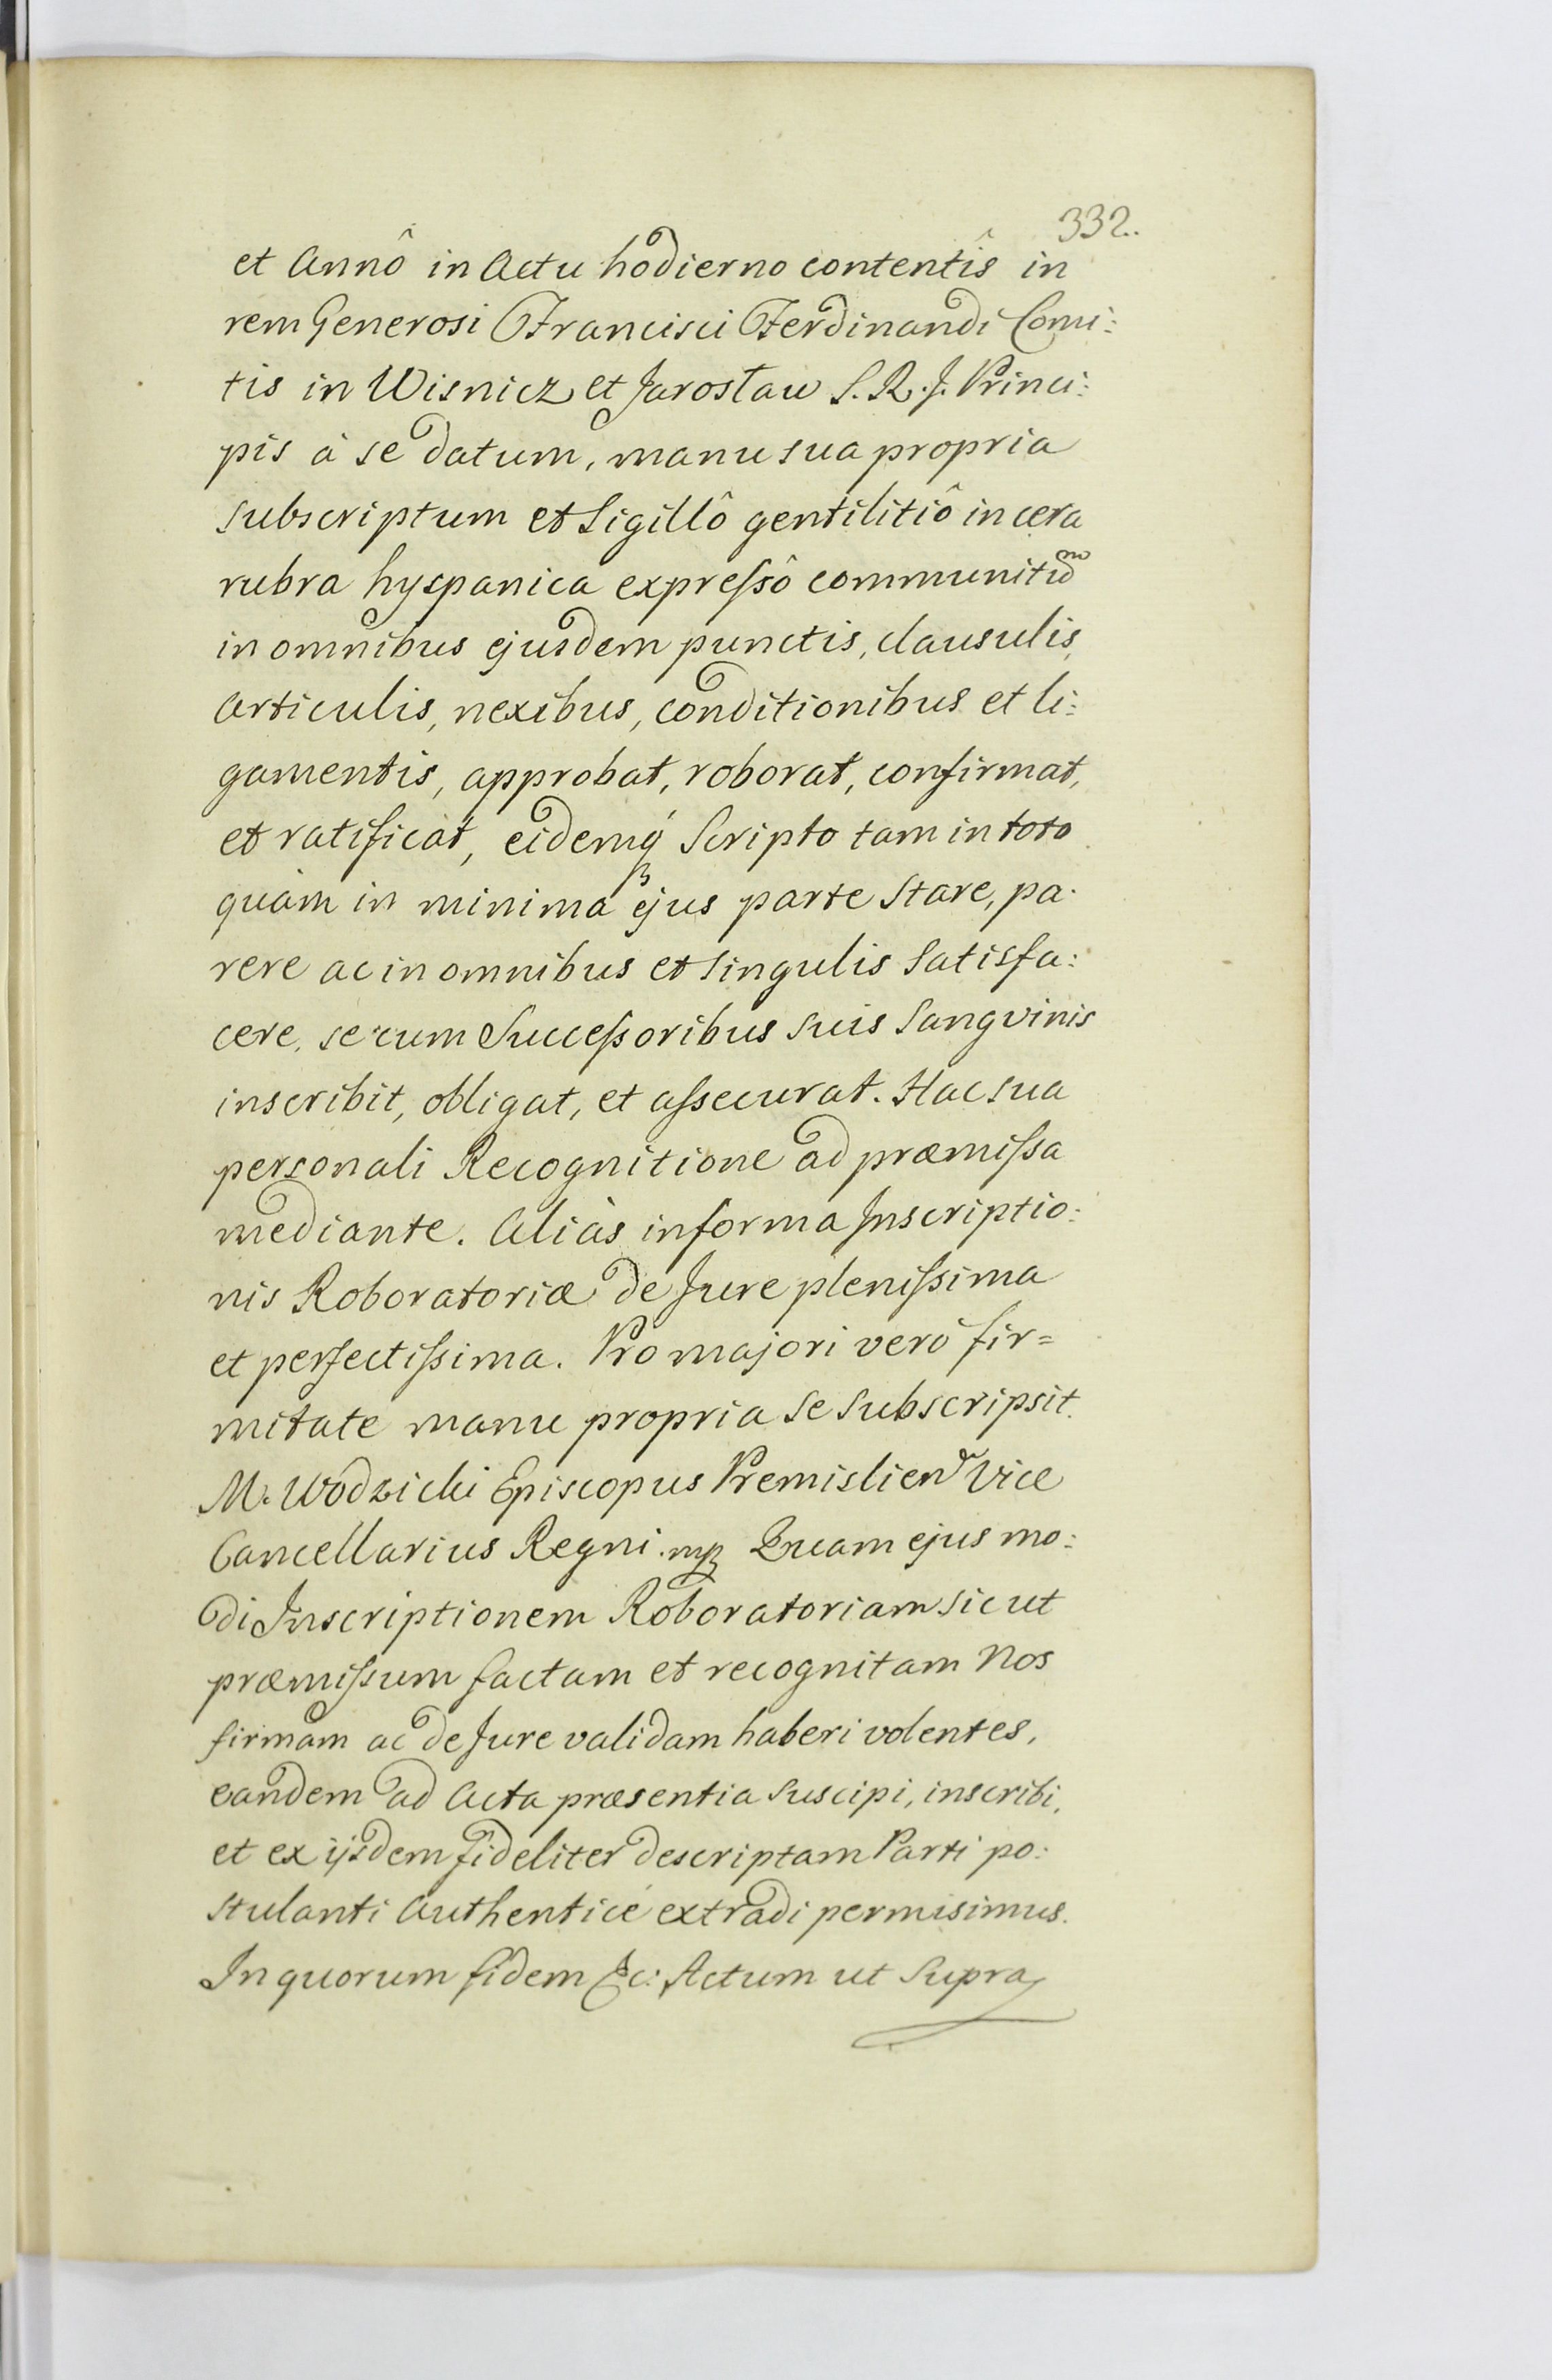 332.
et Annô in Actu hodierno contentîs in
rem Generosi Francisci Ferdinandi Comi:
tis in Wisnicz et Jarosław S. R. J. Princi:
pis à se datum, manu sua propria
subscriptum et Sigillô gentilitiô in cera
rubra hyspanica expreſsô communitũ
in omnibus ejusdem punctis, clausulis,
articulis, nexibus, conditionibus et li:
gamentis, approbat, roborat, confirmat,
et ratificat, eidemq́ꝫ Scripto tam in toto
quàm in minima ejus parte Stare, pa:
rere ac in omnibus et singulis Satisfa:
cere, se cum Succeſsoribus suis Sangvinis
inscribit, obligat, et aſsecurat. Hac sua
personali Recognitione ad præmiſsa
mediante. Aliàs in forma Inscriptio:
nis Roboratoriæ de Jure pleniſsima
et perfectiſsima. Pro majori verò fir=
mitate manu propria se subscripsit.
M. Wodzicki Episcopus Premislien Vice
Cancellarius Regni. mp Quam ejus mo:
di Inscriptionem Roboratoriam sic ut
præmiſsum factam et recognitam Nos
firmam ac de Jure validam haberi volentes,
eandem ad Acta præsentia suscipi, inscribi,
et ex ijsdem fideliter descriptam Parti po:
stulanti Authenticè extradi permisimus.
In quorum fidem &c: Actum ut Supra